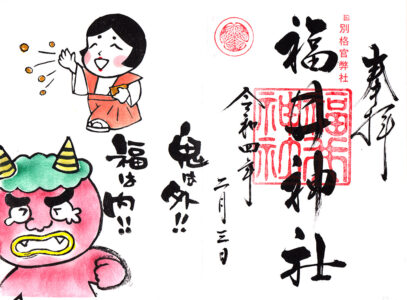 奉拝
旧別格官幣社
福井神社
福井
神社
令和四年
二月三日
鬼は外!!
福は内!!